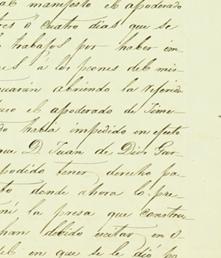 al manifesto el apoderado
tres ó cuatro dias que se
trabajos por haber con
á los peones del mis
abriendo la referida
el apoderado de Jime
do habia impedido en efecto
que D. Juan de Dios Gar
podido tener derecho pa
to donde ahora lo pre
la presa que construa
han debido evitar en
del en que se le dió pa